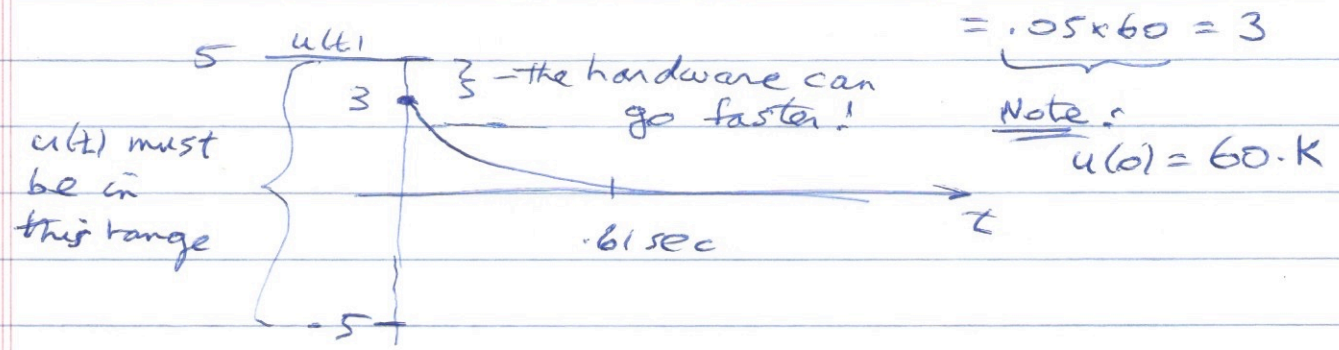 = .05x60 = 3
5 u(t)
3 } - the hardware can
go faster!
Note:
u(0) = 60.K
u(t) must
be in
this range
t
.61 sec
-5